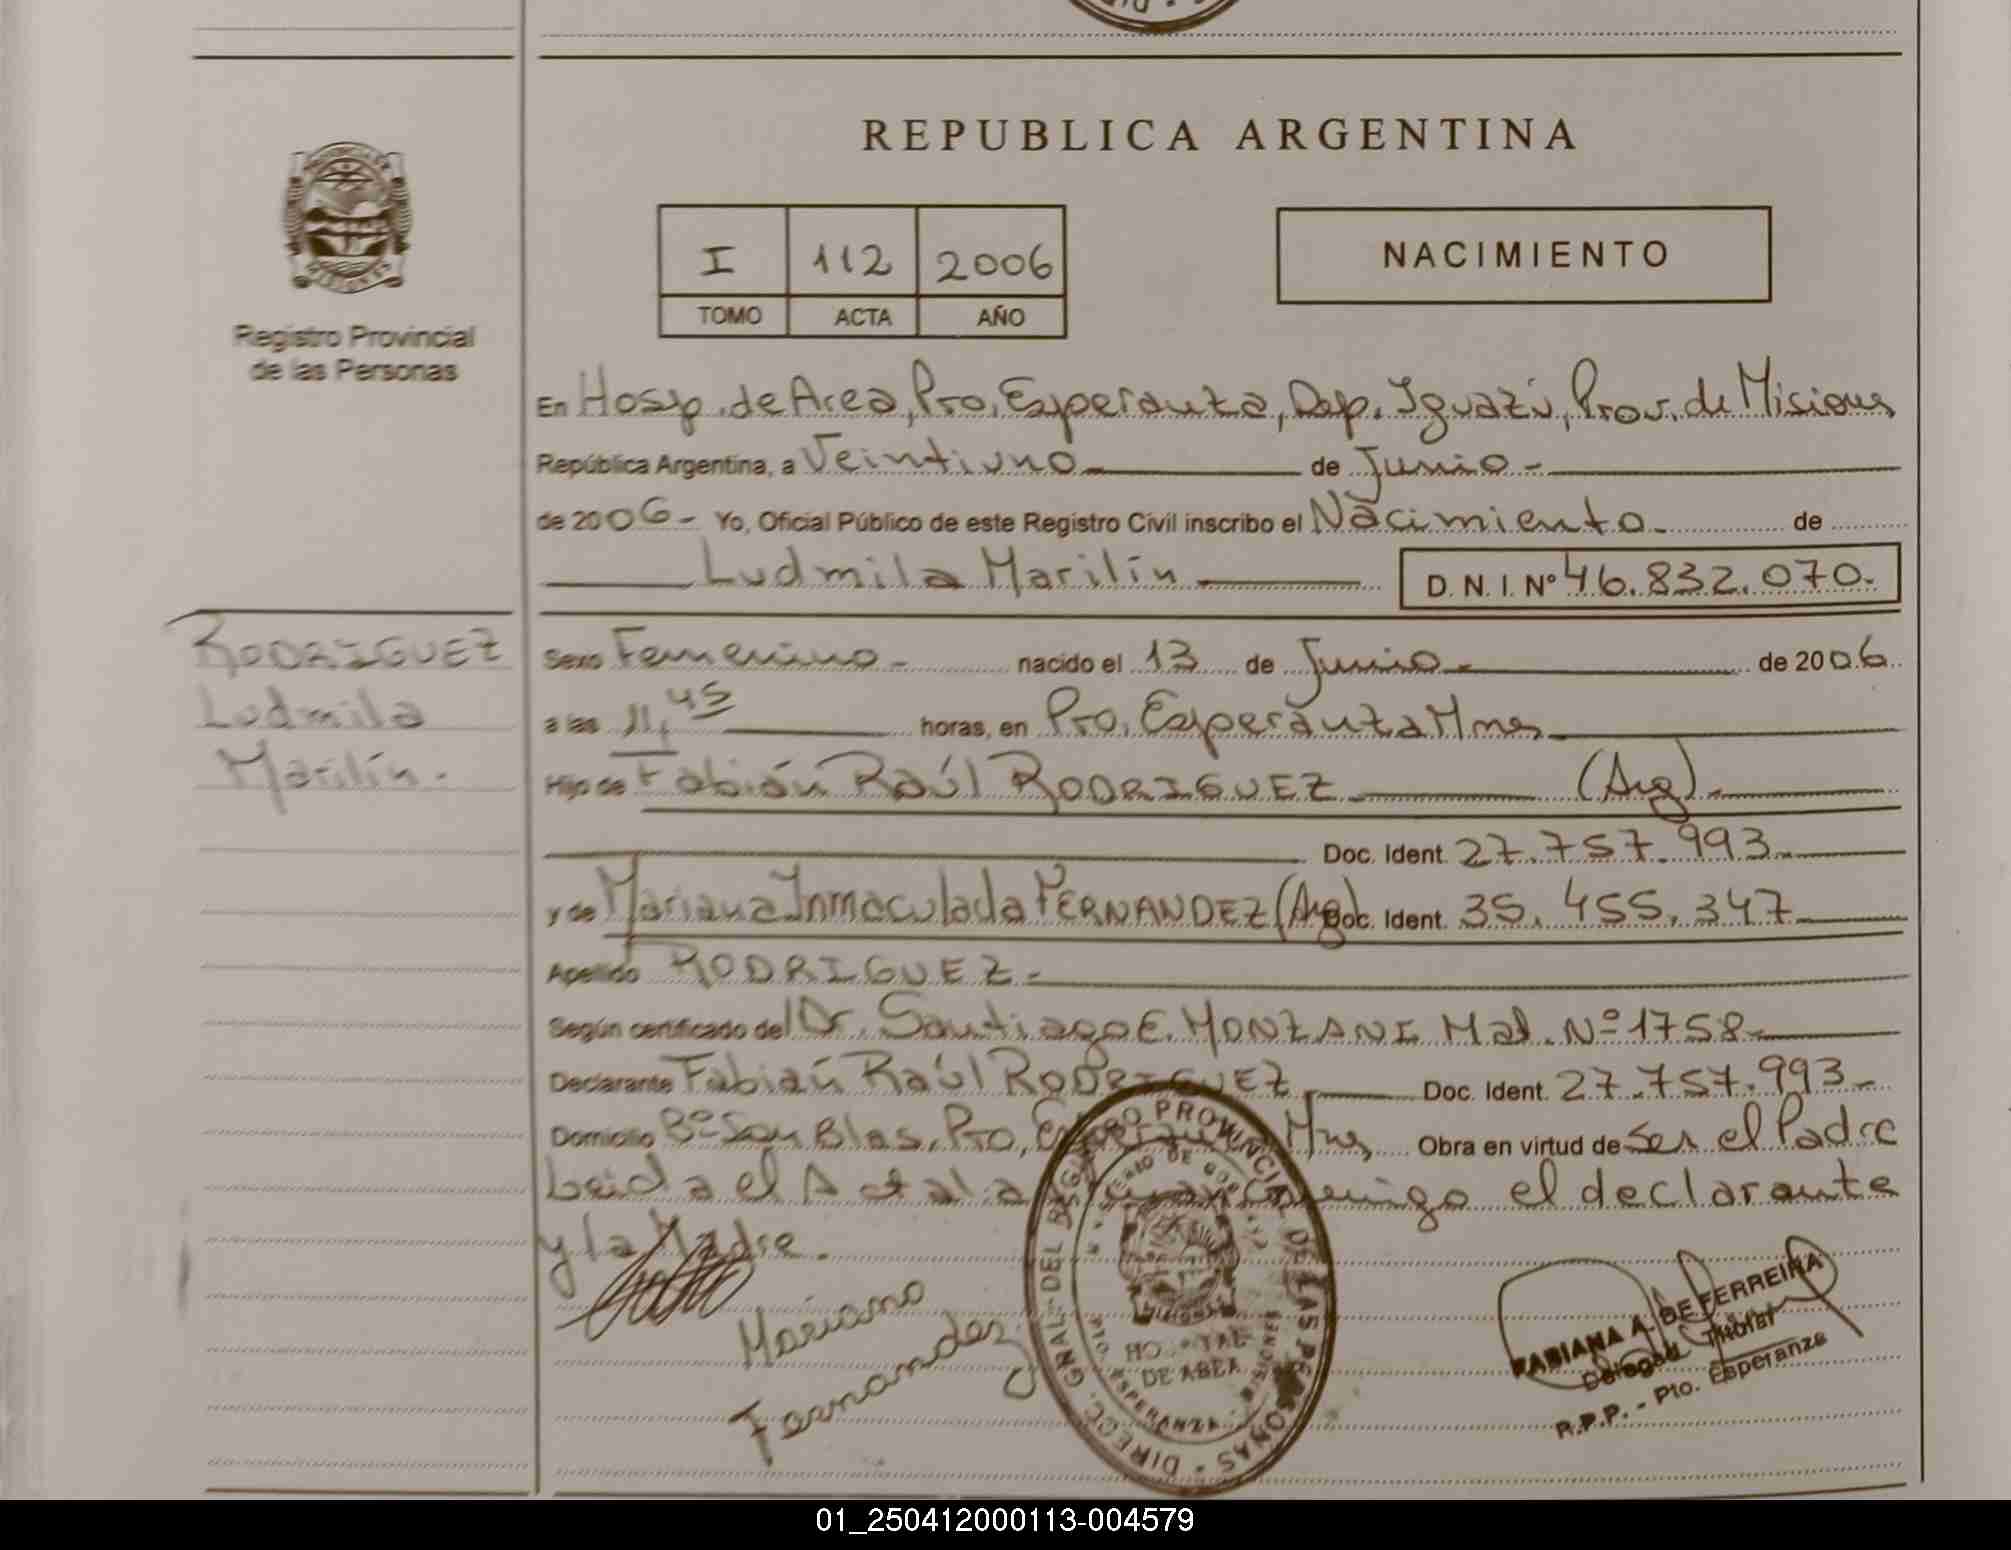 REPUBLICA ARGENTINA
I 112 2006
TOMO ACTA AÑO
NACIMIENTO
Registro Provincial
de las Personas
En Hosp. de Area, Pto. Esperanza, Dep. Iguazú, Prov. de Misiones
República Argentina, a Veintiuno de Junio
de 2006 - Yo, Oficial Público de este Registro Civil inscribo el Nacimiento de
Ludmila Marilín D. N. I. Nº 46.832.070.
RODRIGUEZ
Ludmila
Marilín.
Sexo Femenino - nacido el 13 de Junio de 2006
a las 11,45 horas, en Pto. Esperanza Mnes
Hijo de Fabián Raúl RODRIGUEZ (Arg).
Doc. Ident. 27.757.993
y de Mariana Inmaculada FERNANDEZ (Arg) Doc. Ident. 35.455.347
Apellido RODRIGUEZ -
Según certificado del Dr. Santiago E. MONZANI Mat. Nº 1758
Declarante Fabián Raúl RODRIGUEZ Doc. Ident. 27.757.993
Domicilio Bº San Blas, Pto, Esperanza Mnes Obra en virtud de ser el Padre
Leida el Acta la firman conmigo el declarante
y la Madre.
Mariano
Fernandez
DIRECC. GRAL. DEL REGISTRO PROVINCIAL DE LAS PERSONAS
HOSPITAL
DE AREA
ESPERANZA - MISIONES
FABIANA A. DE FERREIRA
Delegad Titular
R.P.P. - Pto. Esperanza
01_250412000113-004579